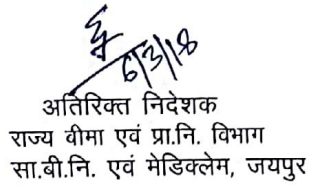 6/3/18
अतिरिक्त निदेशक
राज्य वीमा एवं प्रा.नि. विभाग
सा.बी.नि. एवं मेडिक्लेम, जयपुर